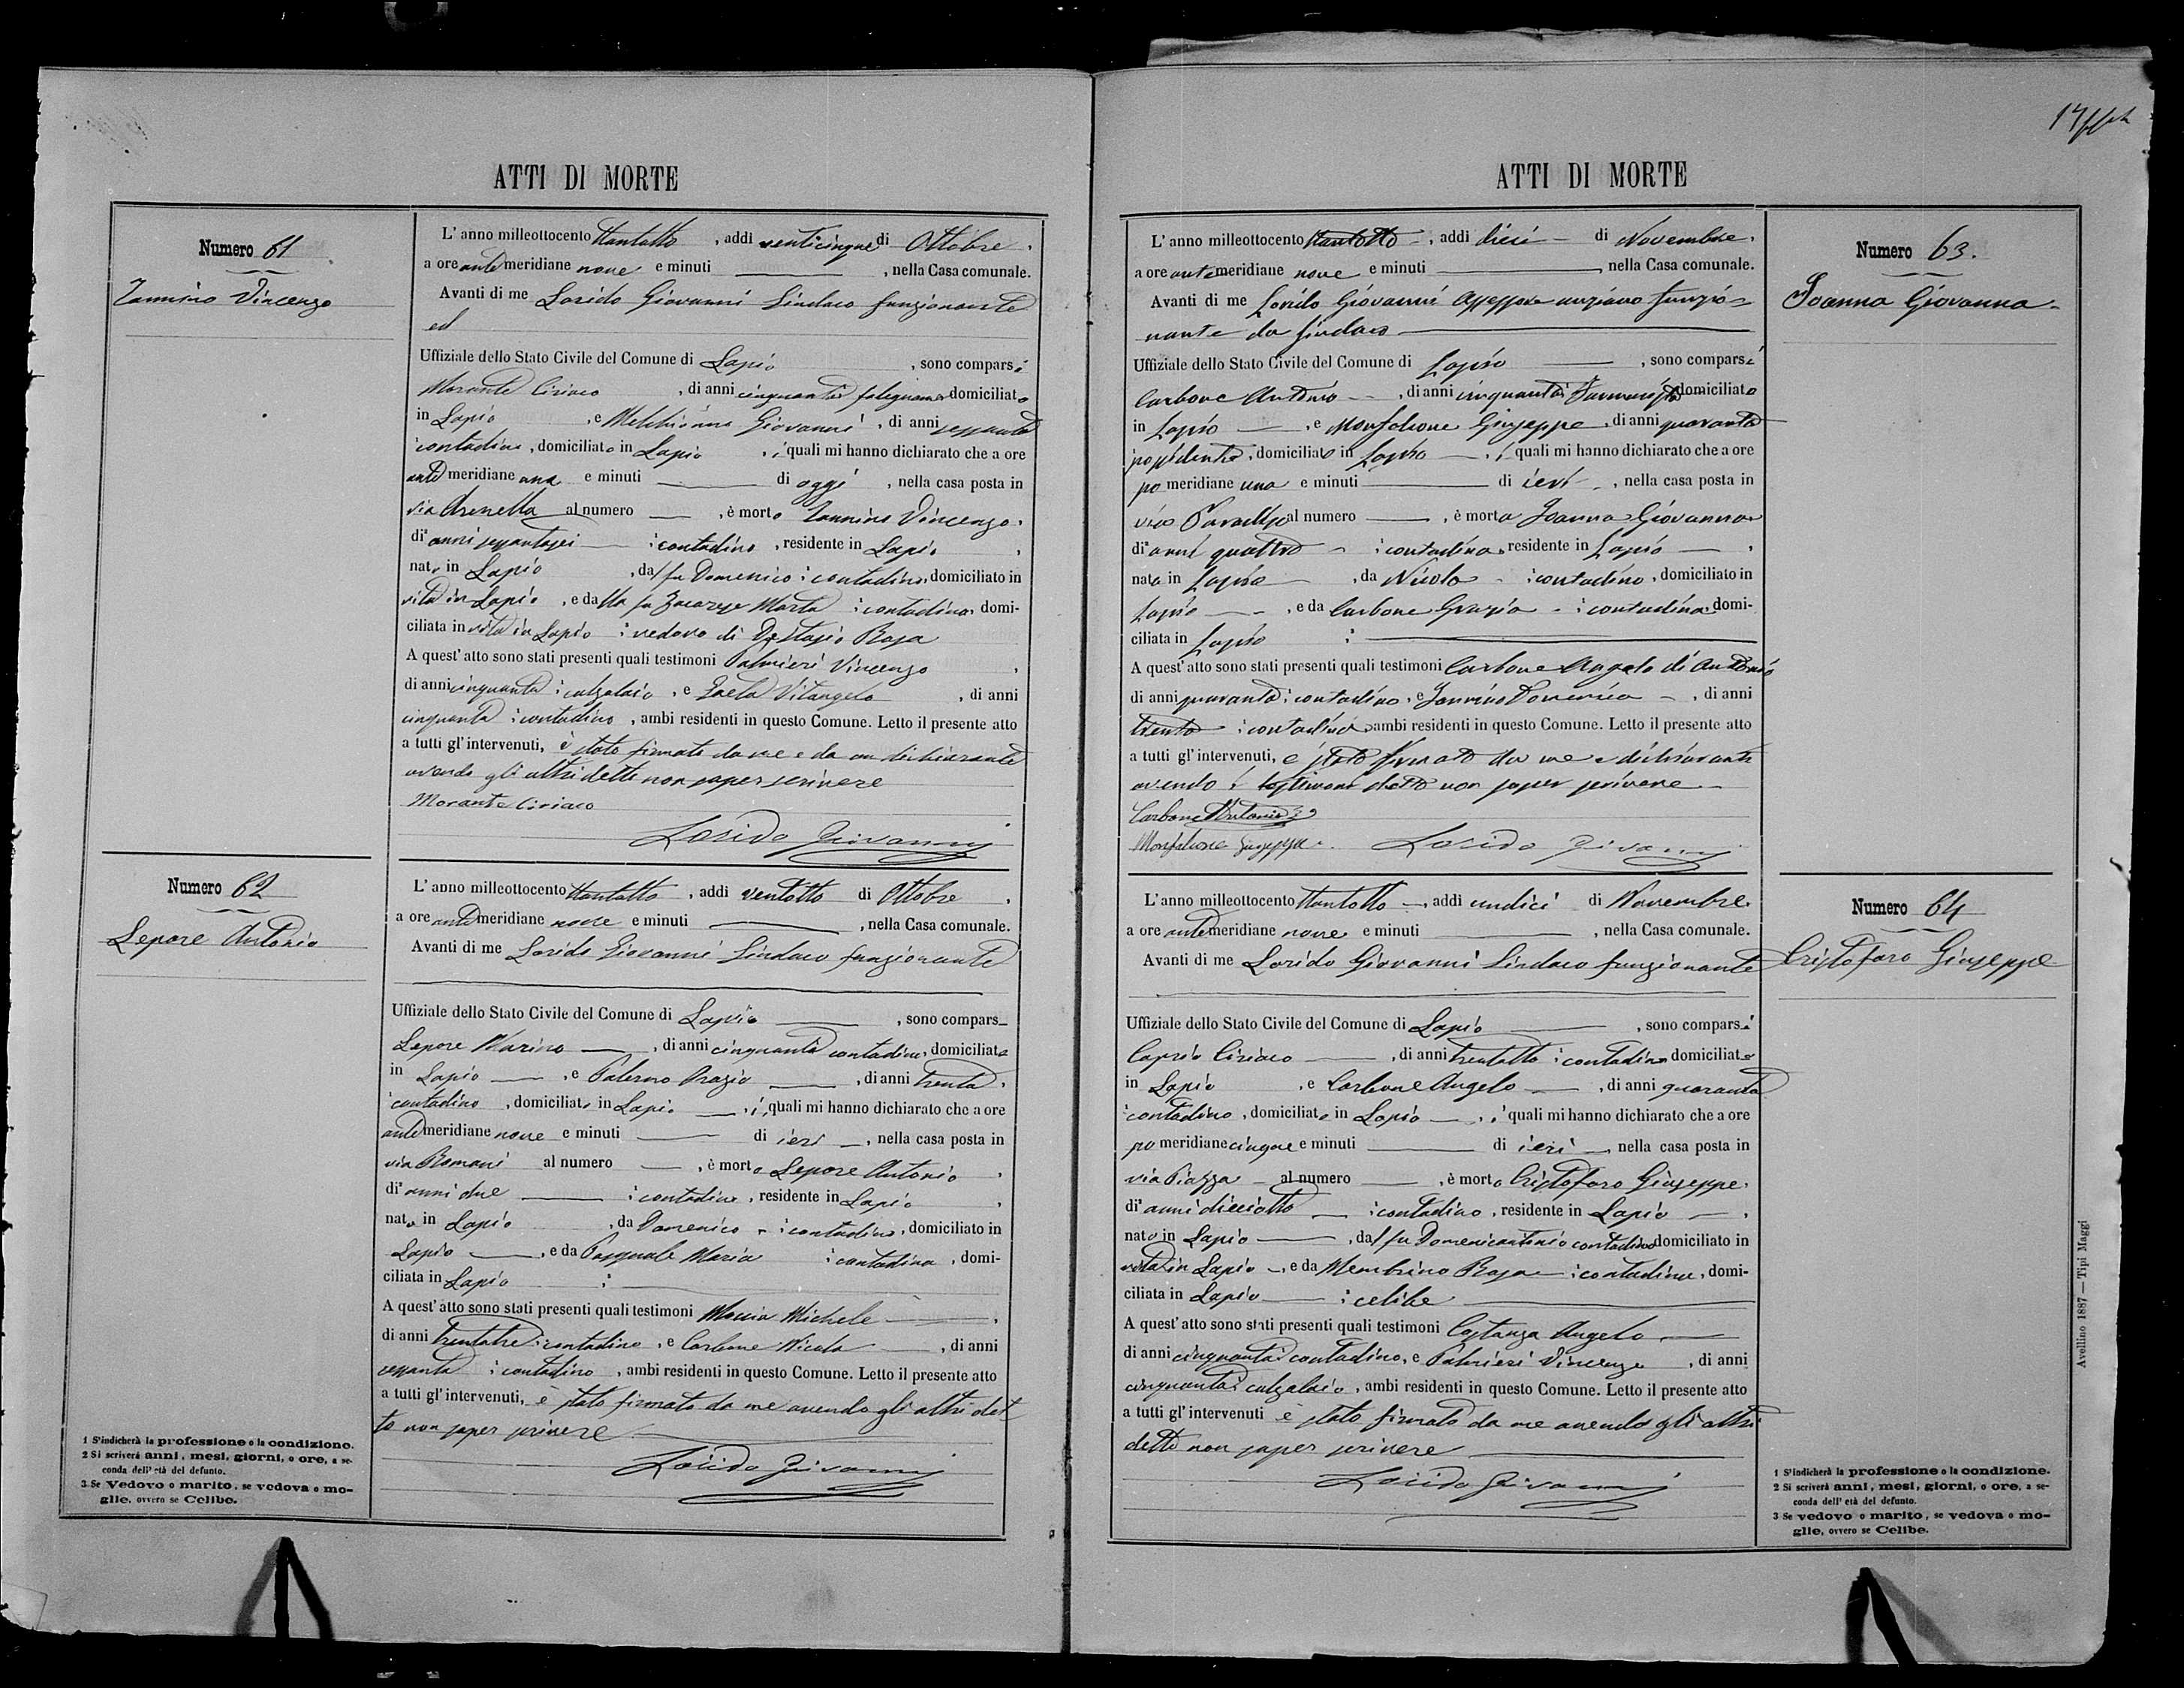 ATTI DI MORTE
Numero 61
Iannino Vincenzo
L'anno milleottocento ttantotto, addi venticinque di Ottobre,
a ore ante meridiane nove e minuti , nella Casa comunale.
Avanti di me Losido Giovanni Sindaco funzionante
ed
Uffiziale dello Stato Civile del Comune di Lapio , sono comparsi
Morante Ciriaco , di anni cinquanta falegname domiciliato
in Lapio , e Melchionna Giovanni , di anni sessanta
contadino, domiciliato in Lapio , i quali mi hanno dichiarato che a ore
ante meridiane una e minuti di oggi , nella casa posta in
via Arenella al numero , è morto Iannino Vincenzo,
di anni sessantasei contadino , residente in Lapio ,
nato in Lapio , dal fu Domenico contadino, domiciliato in
vita in Lapio , e dalla fu Marta contadina domi-
ciliata in vita in Lapio vedovo di Destasio Rosa
A quest' atto sono stati presenti quali testimoni Palmieri Vincenzo ,
di anni cinquanta calzolaio , e Vitangelo , di anni
cinquanta contadino , ambi residenti in questo Comune. Letto il presente atto
a tutti gl' intervenuti, è stato firmato da me e da un dichiarante
avendo gli altri detto non saper scrivere
Morante Ciriaco
Losido Giovanni
Numero 62
Lepore Antonio
L'anno milleottocento ttantotto , addi ventotto di Ottobre ,
a ore ante meridiane nove e minuti , nella Casa comunale.
Avanti di me Losido Giovanni Sindaco funzionante
Uffiziale dello Stato Civile del Comune di Lapio , sono compars
Lepore Marino , di anni cinquanta contadino, domiciliato
in Lapio , e Palermo Orazio , di anni trenta,
contadino , domiciliato in Lapio , i quali mi hanno dichiarato che a ore
ante meridiane nove e minuti di ieri , nella casa posta in
via Romani al numero , è morto Lepore Antonio ,
di anni due contadino , residente in Lapio ,
nato in Lapio , da Domenico contadino, domiciliato in
Lapio , e da Pasquale Maria contadina , domi-
ciliata in Lapio
A quest' atto sono stati presenti quali testimoni Moccia Michele ,
di anni trentatre contadino , e Carbone Nicola , di anni
sessanta contadino , ambi residenti in questo Comune. Letto il presente atto
a tutti gl' intervenuti, è stato firmato da me avendo gli altri det
to non saper scrivere
Losido Giovanni
1 S'indicherà la professione o la condizione.
2 Si scriverà anni, mesi, giorni, o ore, a se-
conda dell' età del defunto.
3 Se Vedovo o marito, se vedova o mo-
glie, ovvero se Celibe.
ATTI DI MORTE
Numero 63.
Ioanna Giovanna
L'anno milleottocento ttantotto , addi dieci di Novembre,
a ore ante meridiane nove e minuti , nella Casa comunale.
Avanti di me Losido Giovanni Assessore anziano funzio=
nante da Sindaco
Uffiziale dello Stato Civile del Comune di Lapio , sono comparsi
Carbone Antonio , di anni cinquanta Farmacista domiciliato
in Lapio , e Monfalcone Giuseppe , di anni quaranta
possidente , domiciliato in Lapio , i quali mi hanno dichiarato che a ore
po meridiane una e minuti di ieri , nella casa posta in
via al numero , è morta Ioanna Giovanna
di anni quattro contadina residente in Lapio ,
nata in Lapio , da Nicola contadino , domiciliato in
Lapio , e da Carbone Grazia contadina domi-
ciliata in Lapio
A quest' atto sono stati presenti quali testimoni Carbone Angelo di Antonio
di anni quaranta contadino, e Iannino Domenico , di anni
trenta contadino ambi residenti in questo Comune. Letto il presente atto
a tutti gl' intervenuti, è stato firmato da me e dichiaranti
avendo i testimoni detto non saper scrivere
Carbone Antonio
Monfalcone Giuseppe Losido Giovanni
Numero 64
Cristofaro Giuseppe
L'anno milleottocento ttantotto , addi undici di Novembre,
a ore ante meridiane nove e minuti , nella Casa comunale.
Avanti di me Losido Giovanni Sindaco funzionante
Uffiziale dello Stato Civile del Comune di Lapio , sono comparsi
Caprio Ciriaco , di anni trentotto contadino domiciliato
in Lapio , e Carbone Angelo , di anni quaranta
contadino , domiciliato in Lapio , i quali mi hanno dichiarato che a ore
po meridiane cinque e minuti di ieri , nella casa posta in
via Piazza al numero , è morto Cristofaro Giuseppe,
di anni dieciotto contadino , residente in Lapio ,
nato in Lapio , dal fu Domenicantonio contadino domiciliato in
vita in Lapio , e da Membrino Rosa contadina, domi-
ciliata in Lapio celibe
A quest' atto sono stati presenti quali testimoni Costanza Angelo
di anni cinquanta contadino, e Palmieri Vincenzo , di anni
cinquanta calzolaio , ambi residenti in questo Comune. Letto il presente atto
a tutti gl' intervenuti è stato firmato da me avendo gli altri
detto non saper scrivere
Losido Giovanni
1 S'indicherà la professione o la condizione.
2 Si scriverà anni, mesi, giorni, o ore, a se-
conda dell' età del defunto.
3 Se vedovo o marito, se vedova o mo-
glie, ovvero se Celibe.
Avellino 1887 — Tipi Maggi